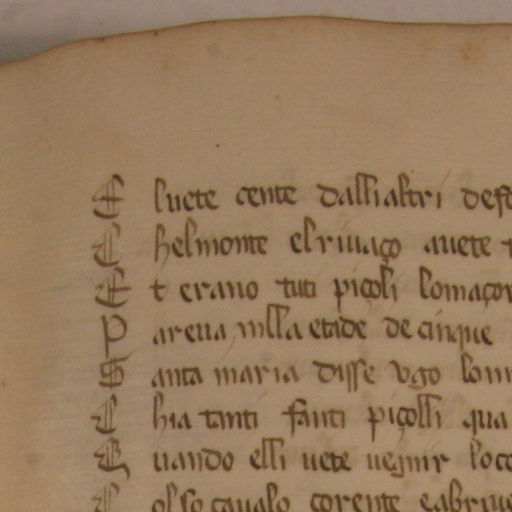 E l uete cente dalli altri defe
C hel monte el riuaço auete
E t erano tuti piçoli lo maçor
P areua in lla etade de cinque
S anta maria disse vgo lom
C hia tanti fanti piçolli qua
Q uando elli uete uegnir loco
C ol so caualo corente e abriue